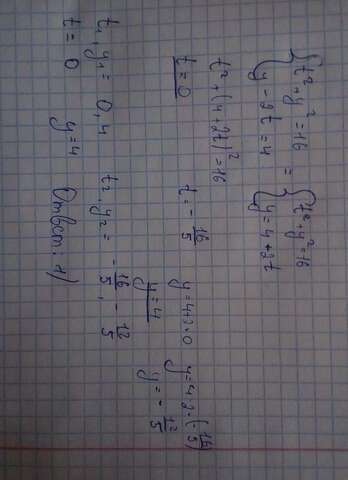 { t² + y² = 16 = { t² + y² = 16
{ y - 2t = 4 { y = 4 + 2t
t² + (4 + 2t)² = 16
t = 0 t = - 16/5 y = 4 + 2·0 y = 4 + 2·(-16/5)
y = 4 y = - 12/5
t₁, y₁ = 0, 4 t₂, y₂ = - 16/5, - 12/5
t = 0 y = 4 Ответ: 1)